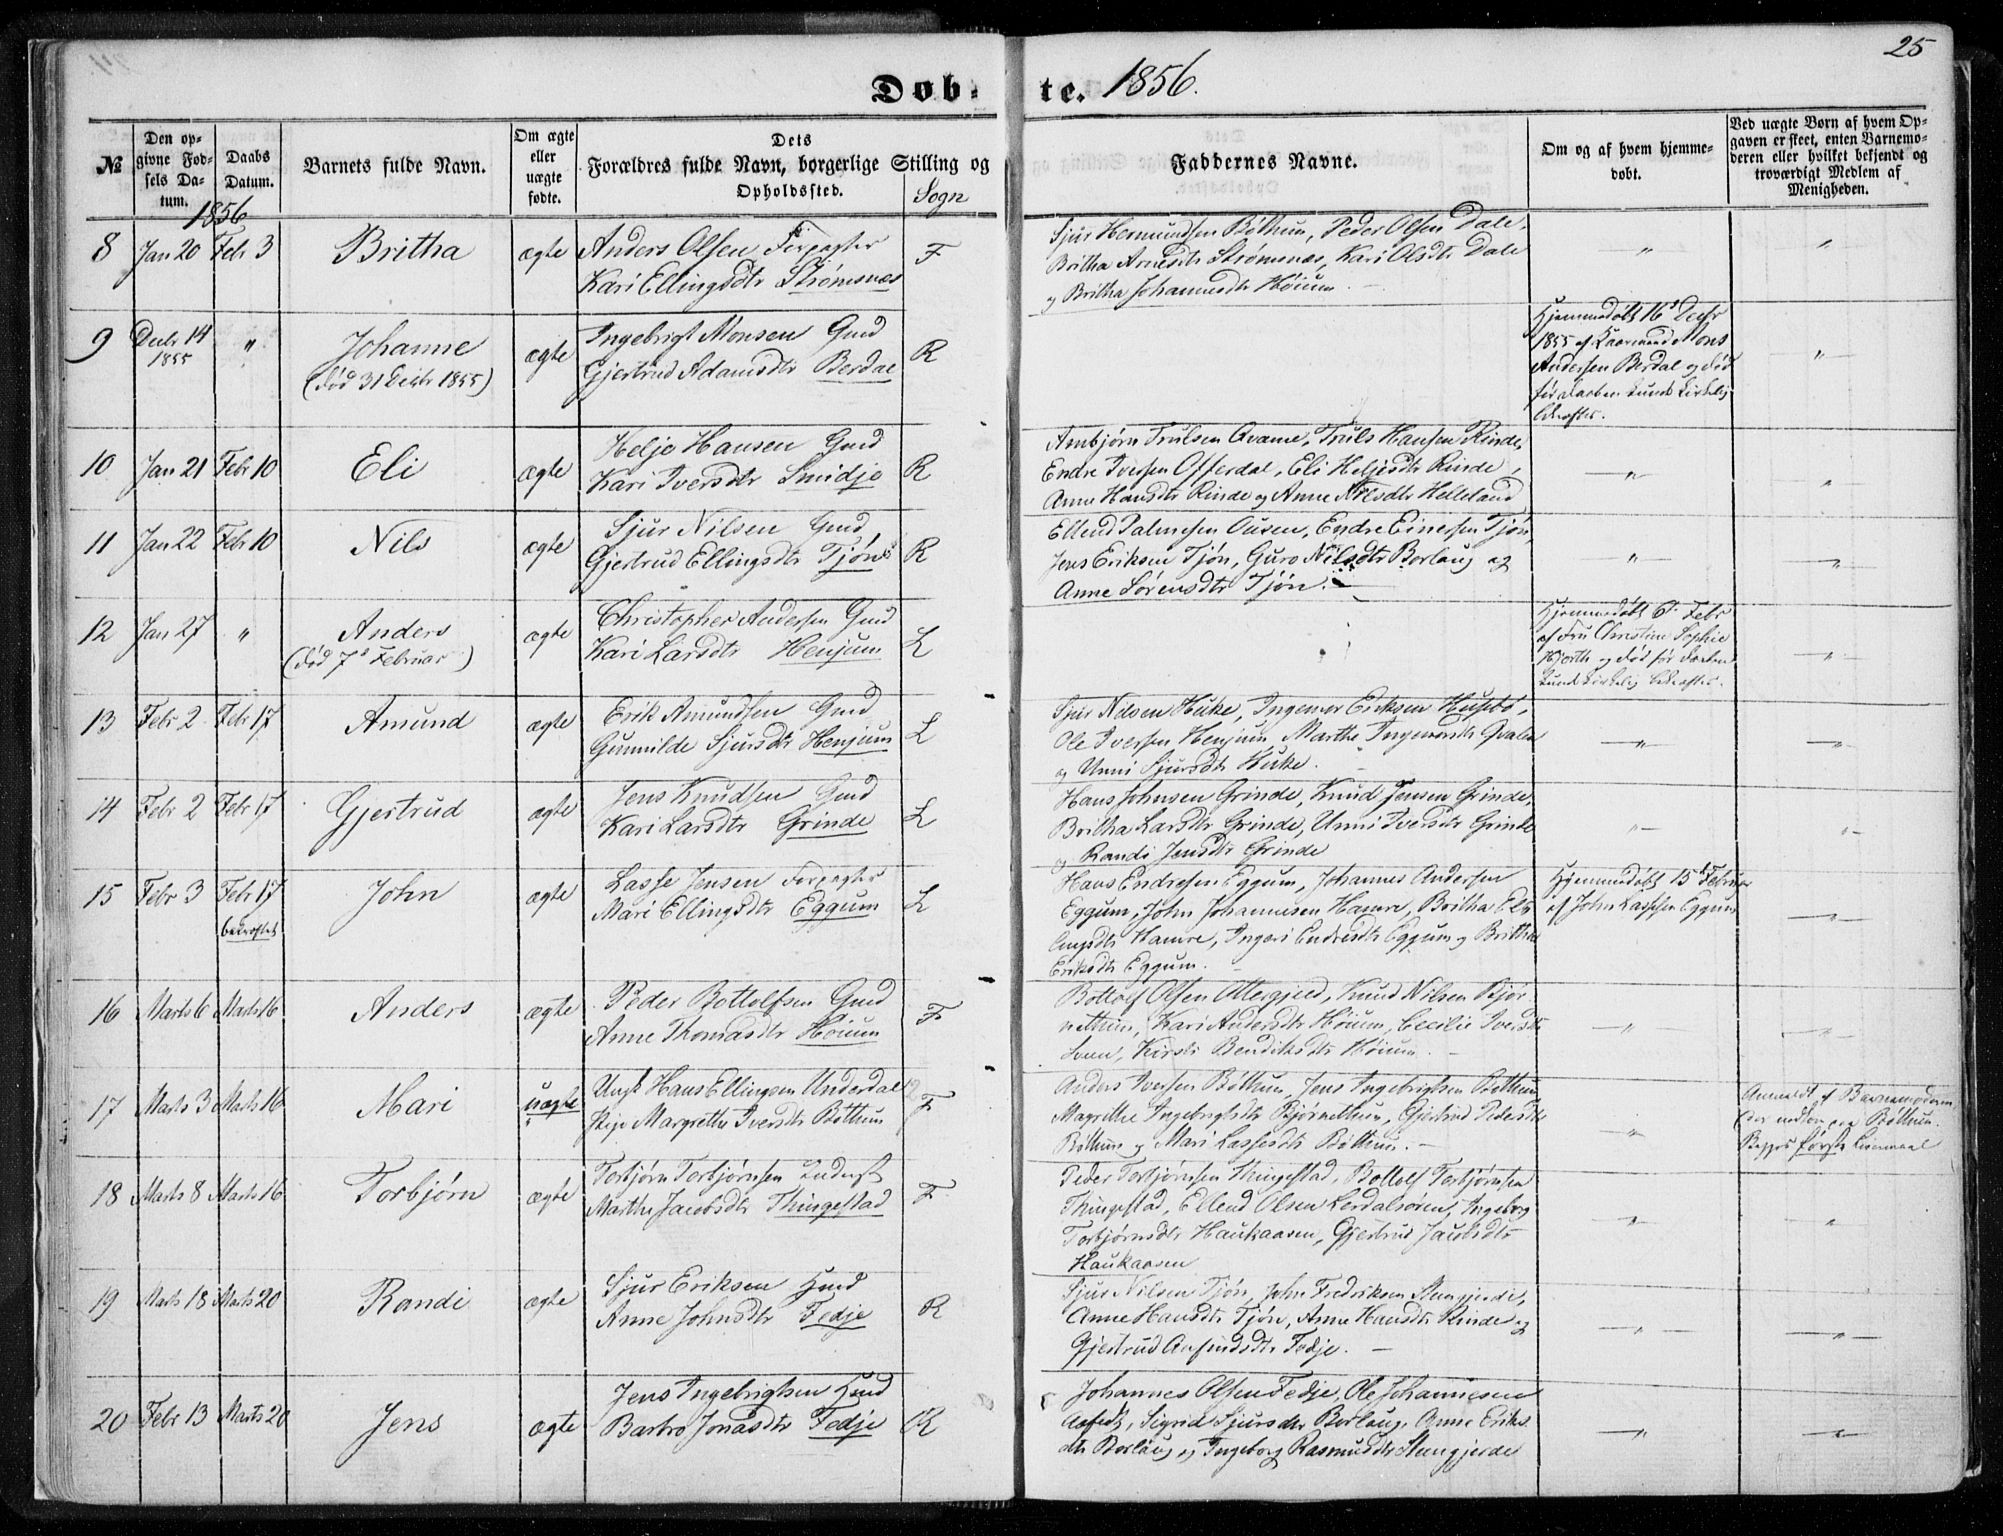 25
Døb-te. 1856.
№
Den opgivne Fødsels Datum.
Daabs Datum.
Barnets fulde Navn.
Om ægte eller uægte fødte.
Dets Forældres fulde Navn, borgerlige Stilling og Opholdssted.
Sogn
Faddernes Navne.
Om og af hvem hjemmedøbt.
Ved uægte Børn af hvem Opgaven er skeet, enten Barnemoderen eller hvilket bekjendt og troværdigt Medlem af Menigheden.
1856
8 Jan 20 Febr 3 Britha ægte Anders Olsen Forpagter F
Kari Ellingsdtr Strømsnæs
Sjur Hermundsen Bøthun, Peder Olsen Dale,
Britha Arnesdtr Strømsnæs, Kari Olsdtr Dale
og Britha Johannesdtr Høium. —
" "
9 Decbr 14 1855 " Johanne ægte Ingebrigt Monsen Gmd R
(død 31 Decbr 1855) Gjertrud Adamsdtr Berdal
Hjemmedøbt 16d Decbr
1855 af Kaarmand Mons
Andersen Berdal og død
før Daaben kunde kirkelig
bekræftes.
"
10 Jan 21 Febr 10 Eli ægte Helje Hansen Gmd R
Kari Iversdtr Smidje
Arnbjørn Trulsen Qvame, Truls Hansen Rinde,
Endre Iversen Offerdal, Eli Heljesdtr Rinde,
Anne Hansdtr Rinde og Anne Nilsdtr Helleland
" "
11 Jan 22 Febr 10 Nils ægte Sjur Nilsen Gmd R
Gjertrud Ellingsdtr Tjøn
Ellend Palmesen Ousen, Endre Einersen Tjøn,
Jens Eriksen Tjøn, Guro Nilsdtr Borlaug og
Anne Sørensdtr Tjøn.
" "
12 Jan 27 " Anders ægte Christopher Andersen Gmd L
(død 7d Februar) Kari Larsdtr Henjum
Hjemmedøbt 6t Febr
af Fru Christine Sophie
Hjorth og død før Daaben
kunde kirkelig bekræftes.
"
13 Febr 2 Febr 17 Amund ægte Erik Amundsen Gmd L
Gunnilde Sjursdtr Henjum
Sjur Nilsen Huke, Ingemar Eriksen Husabø,
Ole Iversen Henjum, Marthe Qvalen
og Unni Sjursdtr Huke.
" "
14 Febr 2 Febr 17 Gjertrud ægte Jens Knudsen Gmd L
Kari Larsdtr Grinde
Hans Johnsen Grinde, Knud Jensen Grinde,
Britha Larsdtr Grinde, Unni Iversdtr Grinde
og Randi Jensdtr Grinde
" "
15 Febr 3 Febr 17 John ægte Lasse Jensen Forpagter L
bekræftet Mari Ellingsdtr Eggum
Hans Endresen Eggum, Johannes Andersen
Eggum, John Johannesen Hamre, Britha El-
lingsdtr Hamre, Ingeri Endresdtr Eggum og Britha
Eriksdtr Eggum.
Hjemmedøbt 15d Februar
af John Lassesen Eggum
"
16 Marts 6 Marts 16 Anders ægte Peder Bottolfsen Gmd F
Anne Thomasdtr Høium
Bottolf Olsen Ottergjerd, Knud Nilsen Bjør-
nethun, Kari Andersdtr Høium, Cecilie Iversdtr
Kirsti Bendiksdtr Høium. —
" "
17 Marts 3 Marts 16 Mari uægte Ungk Hans Ellingsen Underdal F
Pige Margrethe Iversdtr Bøthun
Anders Iversen Bøthun, Jens Ingebrigtsen Bøthun
Magrethe Ingebrigtsdtr Bjørnethun, Gjertrud Pedersdtr
Bøthun og Mari Lassesdtr Bøthun. —
"
Anmeldt af Barnemoderen
Bøthun.
Begges første Leiermaal
18 Marts 8 Marts 16 Torbjørn ægte Torbjørn Torbjørnsen Inderst F
Marthe Jacobsdtr Thingestad
Peder Torbjørnsen Thingestad, Bottolf Torbjørnsen
Thingestad, Ellend Olsen Lerdalsøren, Ingeborg
Torbjørnsdtr Haukaasen, Gjertrud Jacobsdtr
Haukaasen
" "
19 Marts 18 Marts 20 Randi ægte Sjur Eriksen Hmd R
Anne Johnsdtr Fedje
Sjur Nilsen Tjøn, John Fredriksen Stengjerde,
Anne Hansdtr Tjøn, Anne Hansdtr Rinde og
Gjertrud Anfindsdtr Fedje. —
" "
20 Febr 13 Marts 20 Jens ægte Jens Ingebrigtsen Hmd R
Barbro Jonasdtr Fedje
Johannes Olsen Fedje, Ole Johannesen
Sigrid Sjursdtr Borlaug, Anne Eriks
dtr Borlaug og Ingeborg Rasmusdtr Stengjerde
" "